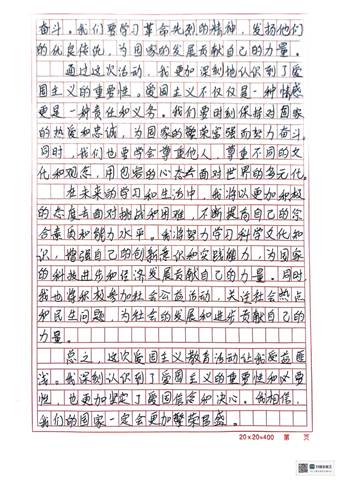 奋斗。我们要学习革命先烈的精神，发扬他们
的优良传统，为国家的发展贡献自己的力量。
通过这次活动，我更加深刻地认识到了爱
国主义的重要性。爱国主义不仅仅是一种情感
更是一种责任和义务。我们要时刻保持对国家
的热爱和忠诚，为国家的繁荣富强而努力奋斗。
同时，我们也要学会尊重他人，尊重不同的文
化和观念，用包容的心态去面对世界的多元化。
在未来的学习和生活中，我将以更加积极
的态度去面对挑战和困难，不断提高自己的综
合素质和能力水平。我将努力学习科学文化知
识，增强自己的创新意识和实践能力，为国家
的科技进步和经济发展贡献自己的力量。同时，
我也将积极参加社会公益活动，关注社会热点
和民生问题，为社会的发展和进步贡献自己的
力量。
总之，这次爱国主义教育活动让我受益匪
浅。我深刻认识到了爱国主义的重要性和必要
性，也更加坚定了爱国信念和决心。我相信，
我们的国家一定会更加繁荣昌盛。
20×20=400 第 页